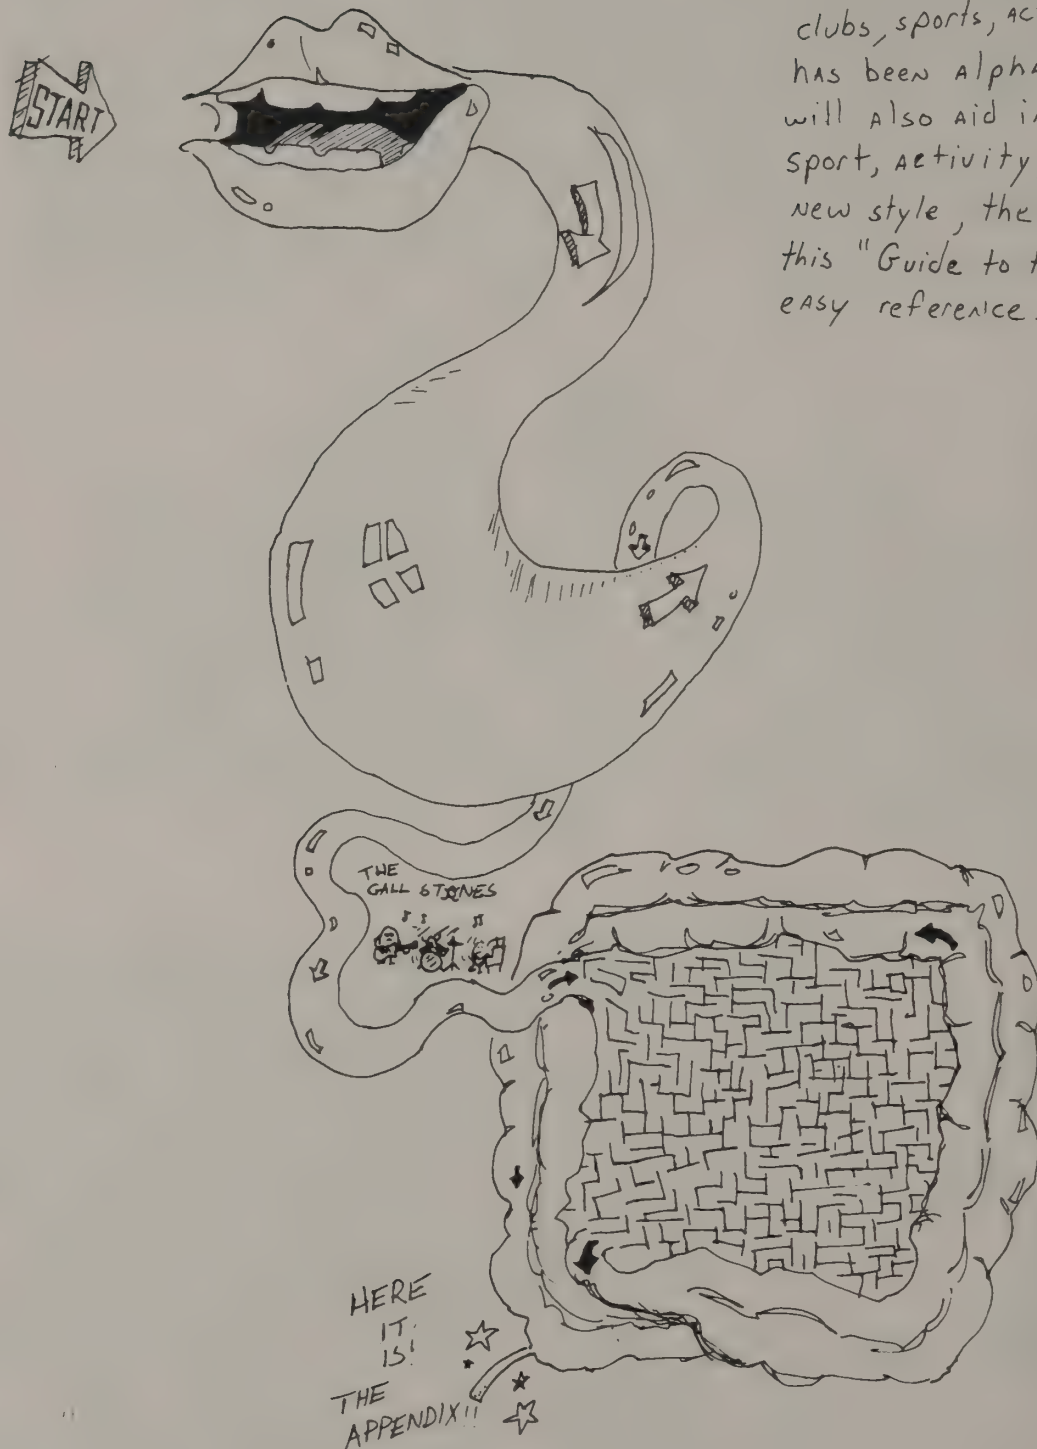 clubs, sports, AC
hAs been Alpha
will Also Aid i
sport, Activity
New style, the
this "Guide to t
eAsy reference.
START
THE
GALL STONES
HERE
IT
IS!
THE
APPENDIX!!